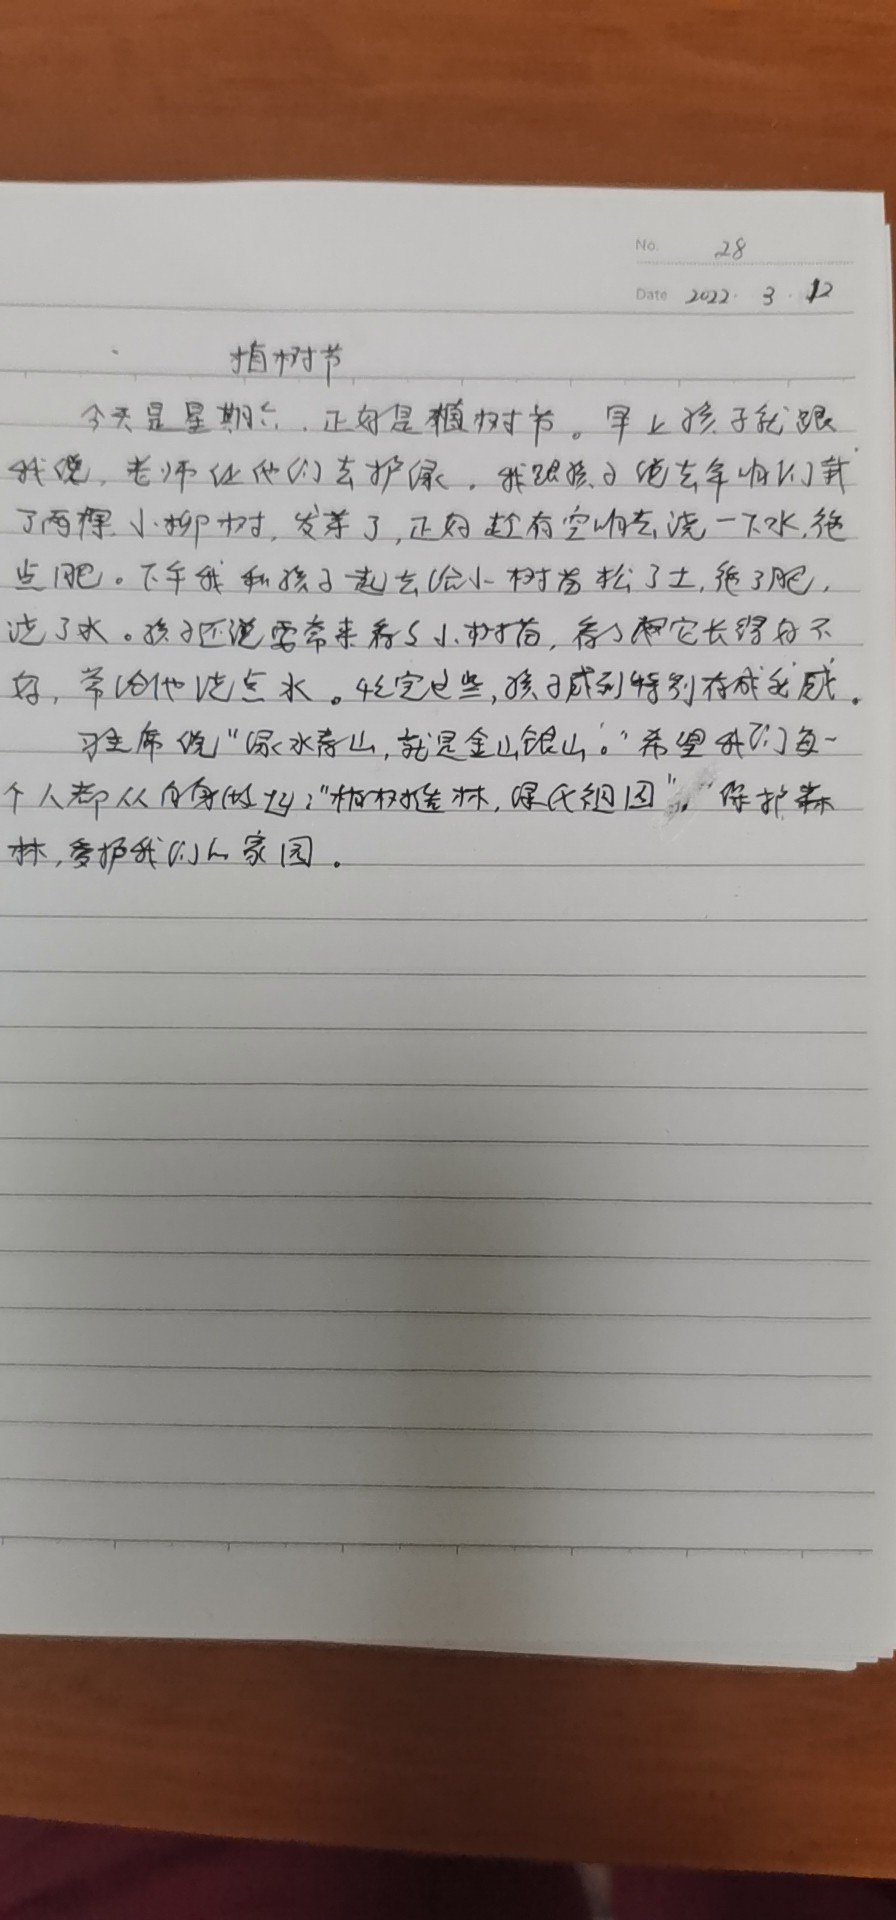 No. 28
Date 2022. 3. 12
植树节
今天是星期六,正好是植树节。早上孩子就跟
我说,老师让他们去护绿。我跟孩子说去年咱们栽
了两棵小柳树,发芽了,正好趁有空咱去浇一下水,施
点肥。下午我和孩子一起去给小树苗松了土,施了肥,
浇了水。孩子还说要常来看看小树苗,看看它长得好不
好,常给他浇点水。忙完这些,孩子感到特别有成就感。
习主席说“绿水青山,就是金山银山。”希望我们每一
个人都从自身做起:“植树造林,绿化祖国”,“保护森
林,爱护我们的家园。